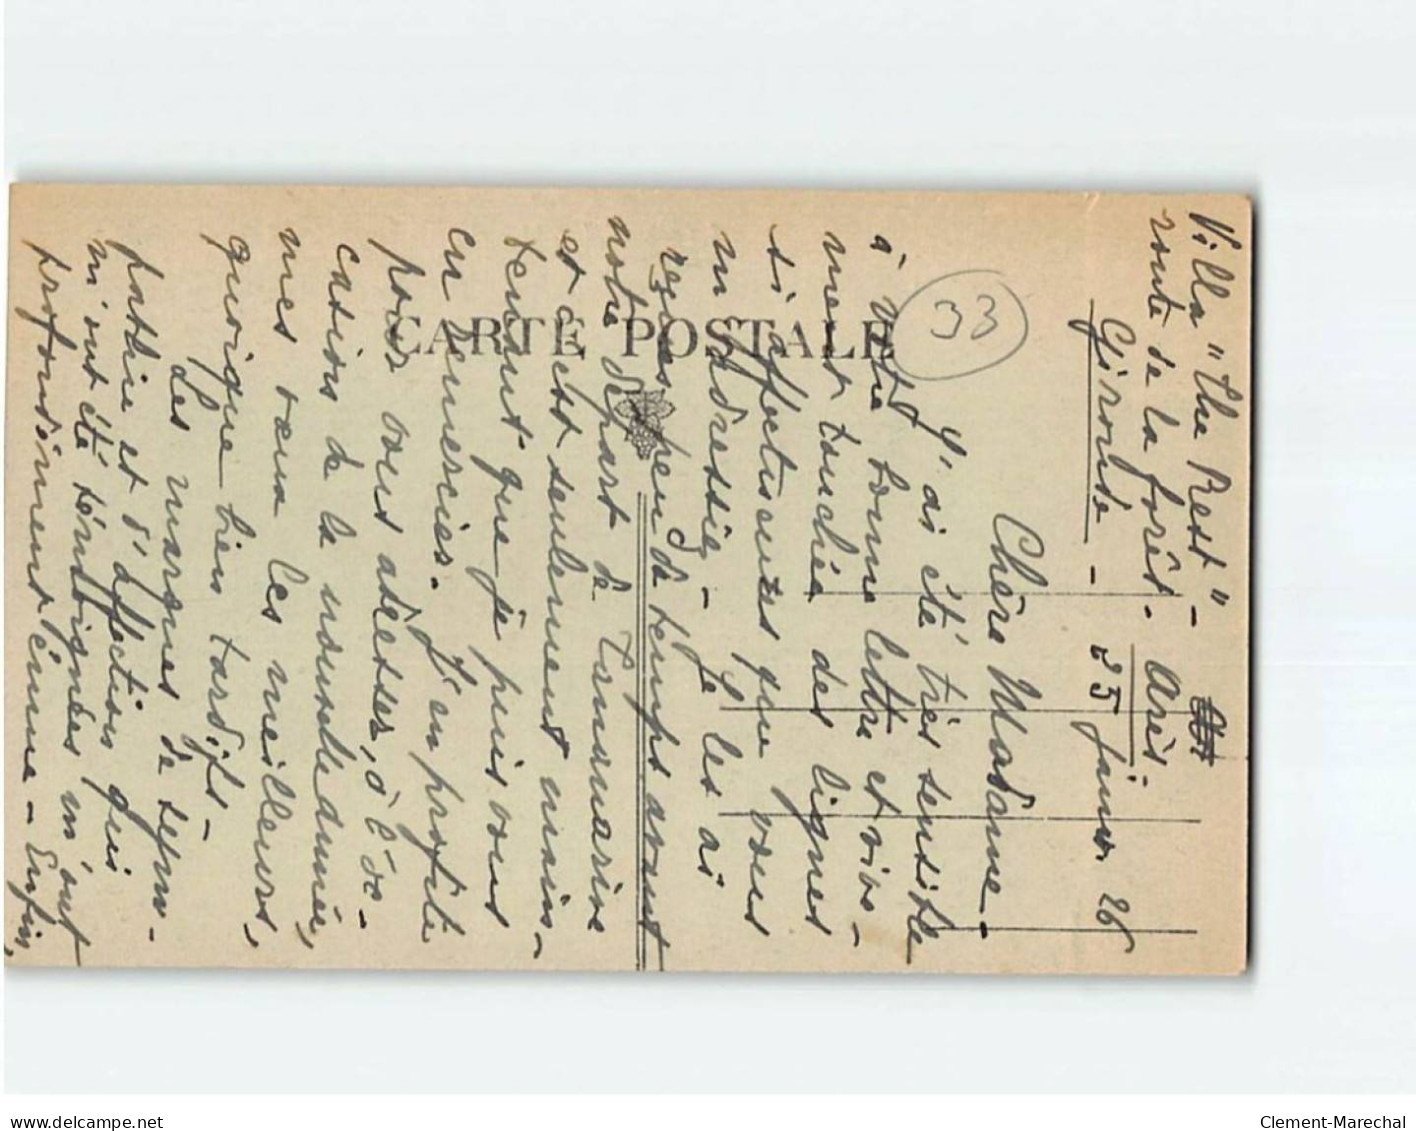 Villa "The Rest" -
route de la forêt. Arès.
Gironde - 25 janv. 26
Chère Madame -
J'ai été très sensible
à votre bonne lettre et vive-
ment touchée des lignes
si affectueuses que vous
m'adressiez - Je les ai
reçues peu de temps avant
notre départ de
et c'est seulement main-
tenant que je puis vous
en remercier. J'en profite
pour vous adresser, à l'oc-
casion de la nouvelle année,
mes vœux les meilleurs,
quoique bien tardifs -
Les marques de sym-
pathie et d'affection qui
m'ont été témoignées m'ont
profondément émue - Enfin,
CARTE POSTALE
33
Clement-Marechal